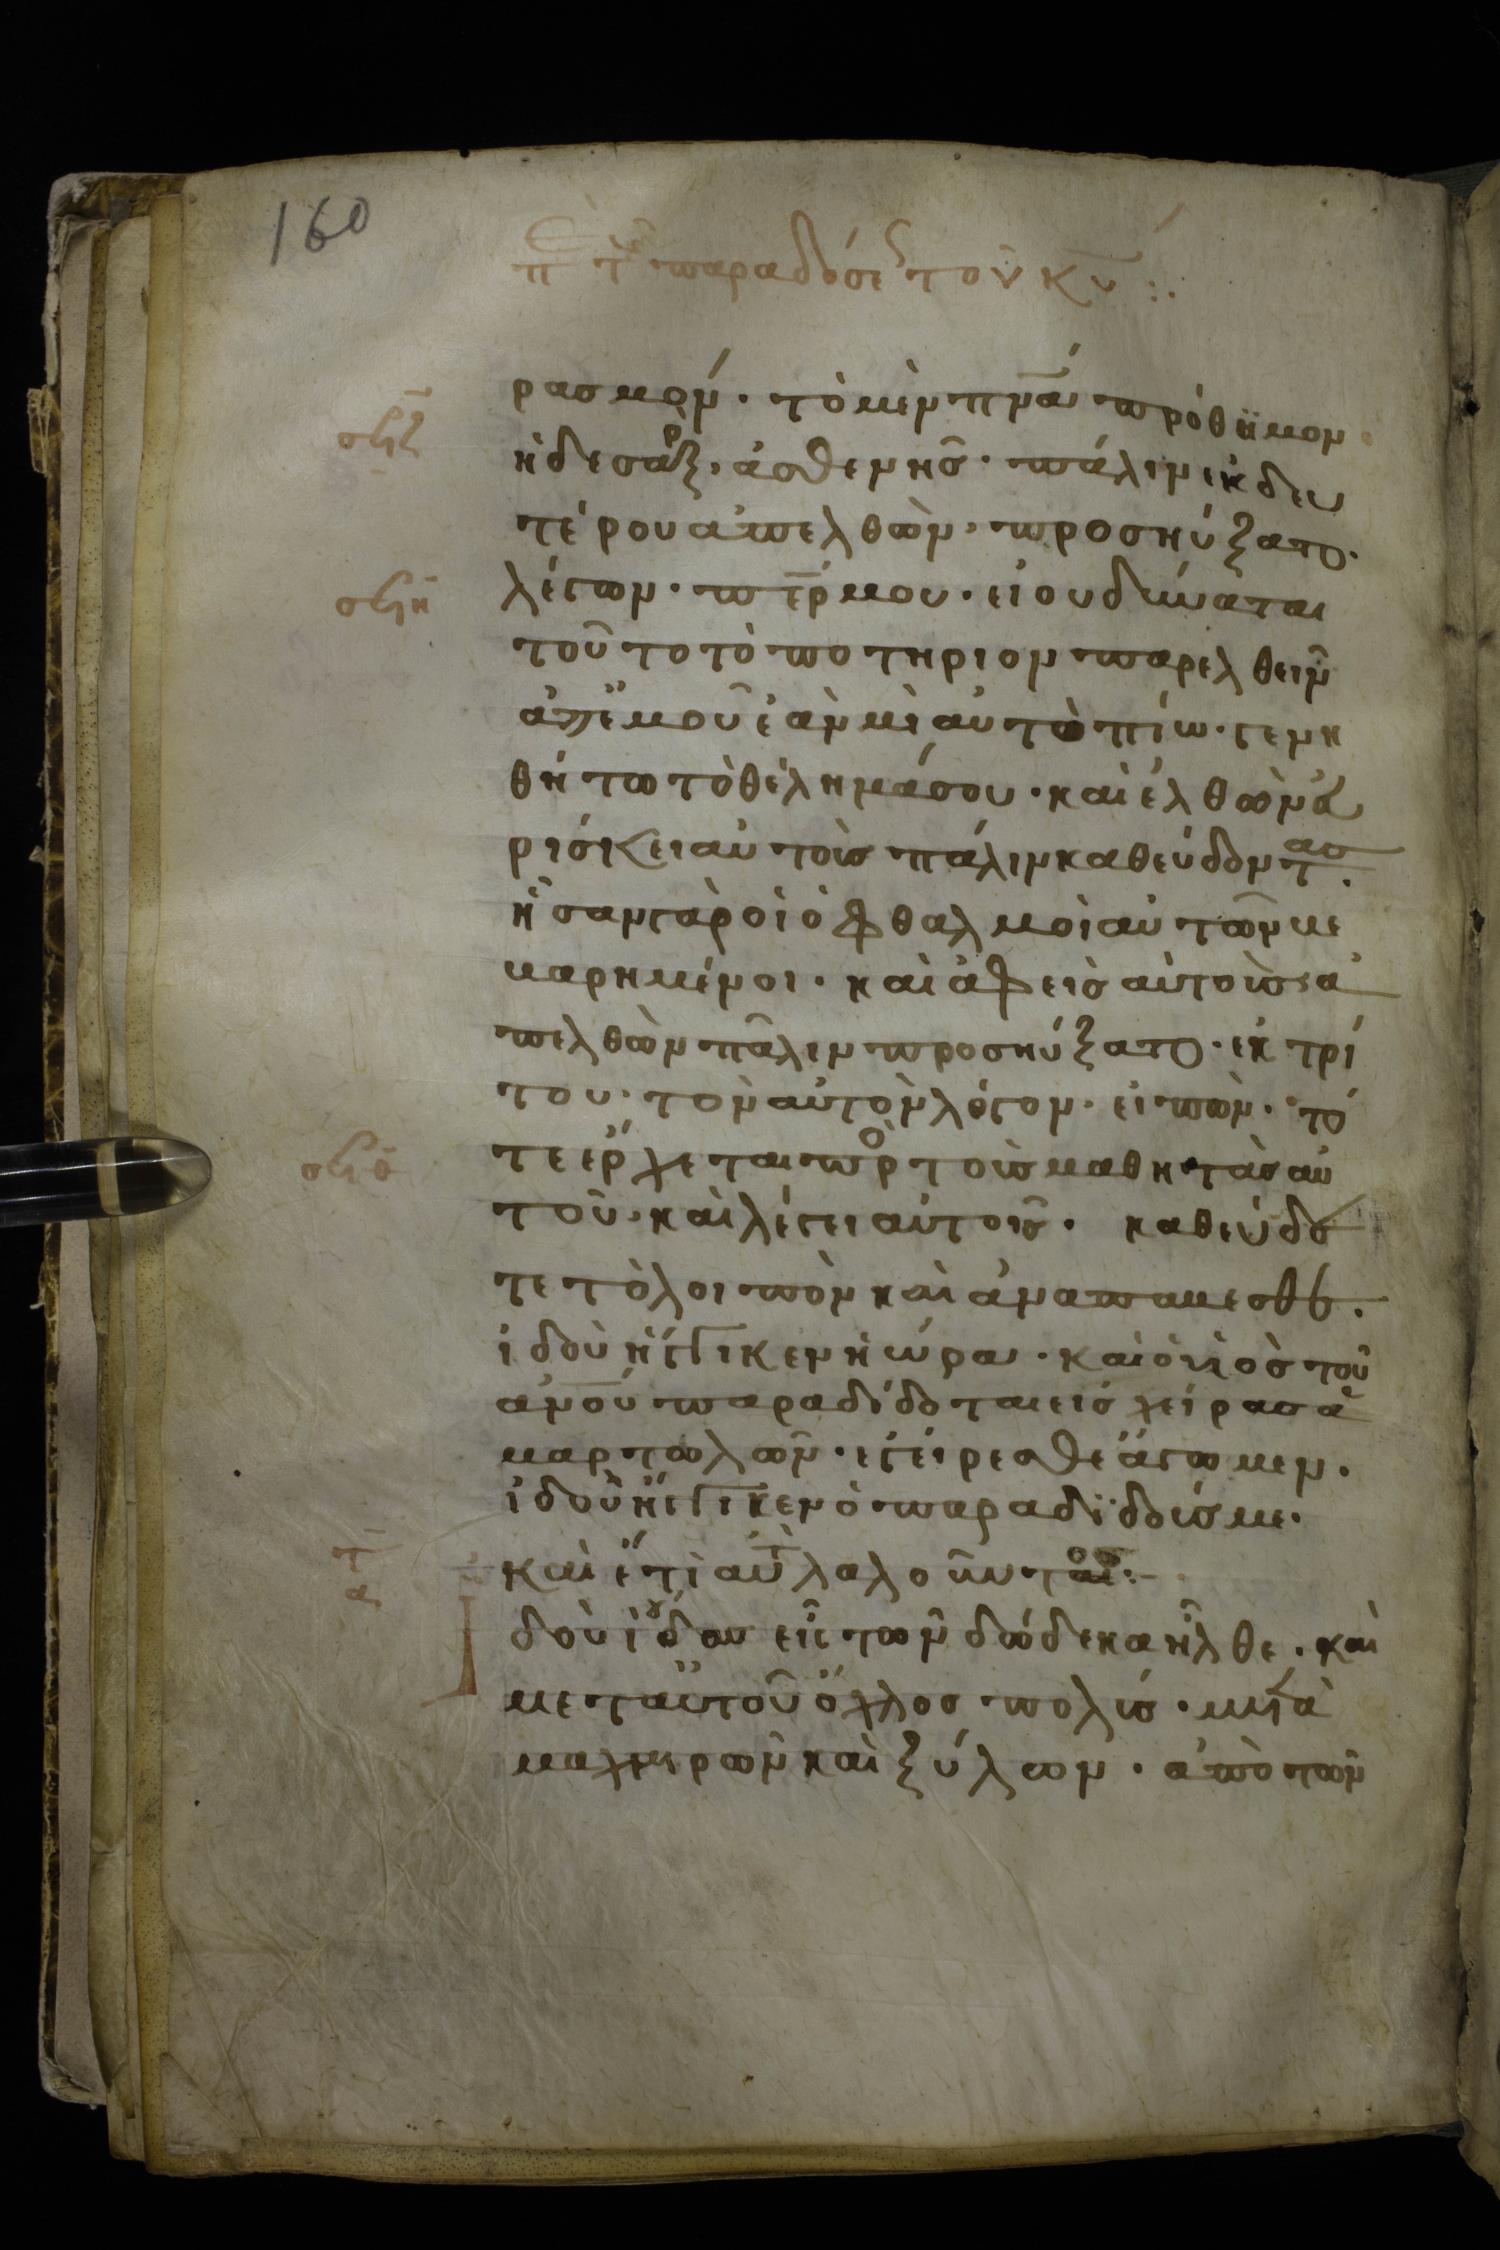 160
Ἐπὶ τῆς παραδόσεως τοῦ κυ :.
ρασμόν· τὸ μὲν πνᾶ πρόθυμον
σϟζ
ἡ δὲ σὰρξ, ἀσθενὴς· πάλιν ἐκ δευ
τέρου ἀπελθὼν, προσηύξατο·
σϟη
λέγων· περ μου· εἰ οὐ δύναται
τοῦτο τὸ ποτήριον παρελθεῖν
ἀπ' ἐμοῦ ἐὰν μὴ αὐτὸ πίω· γενη
θήτω τὸ θέλημά σου· καὶ ἐλθὼν εὑ
ρίσκει αὐτοὺς πάλιν καθεύδοντας·
ἦσαν γὰρ οἱ ὀφθαλμοὶ αὐτῶν βε
βαρημένοι· καὶ ἀφεὶς αὐτοὺς, ἀ
πελθὼν πάλιν προσηύξατο· ἐκ τρί
του· τὸν αὐτὸν λόγον· εἰπὼν· τό
σϟθ
τε ἔρχεται πρὸς τοὺς μαθητὰς αὐ
τοῦ· καὶ λέγει αὐτοῖς· καθεύδε
τε τὸ λοιπὸν καὶ ἀναπαύεσθε·
ἰδοὺ ἤγγικεν ἡ ὥρα· καὶ ὁ υἱὸς τοῦ
ἀνου παραδίδοται εἰς χεῖρας ἁ
μαρτωλῶν· ἐγείρεσθε ἄγωμεν·
ἰδοὺ ἤγγικεν ὁ παραδιδούς με·
τ
α
καὶ ἔτι αὐτοῦ λαλοῦντος:
Ἰδοὺ ἰούδας εἷς τῶν δώδεκα ἦλθε· καὶ
μετ' αὐτοῦ ὄχλος πολύς· μετὰ
μαχαιρῶν καὶ ξύλων· ἀπὸ τῶν